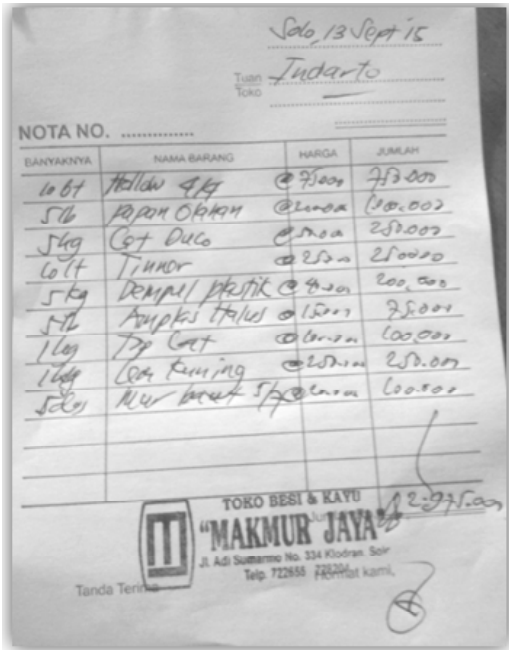 Solo, 13 Sept 15
Tuan Indarto
Toko
NOTA NO. .............
BANYAKNYA NAMA BARANG HARGA JUMLAH
10 bt Hollow 4/4 @ 75.000 750.000
papan @
5 kg Cat Duco @ 50.000 250.000
10 lt Tinner @ 250.000
5 kg Dempul plastik @ 200.000
Amplas Halus @ 15.000 75.000
1 kg Cat @ 100.000
Lem Kuning @ 250.000 250.000
Mur baut @ 100.000
2.975.000
TOKO BESI & KAYU
"MAKMUR JAYA"
Jl. Adi Sumarmo No. 334 Klodran, Solo
Telp. 722655
Tanda Terima
Hormat kami,